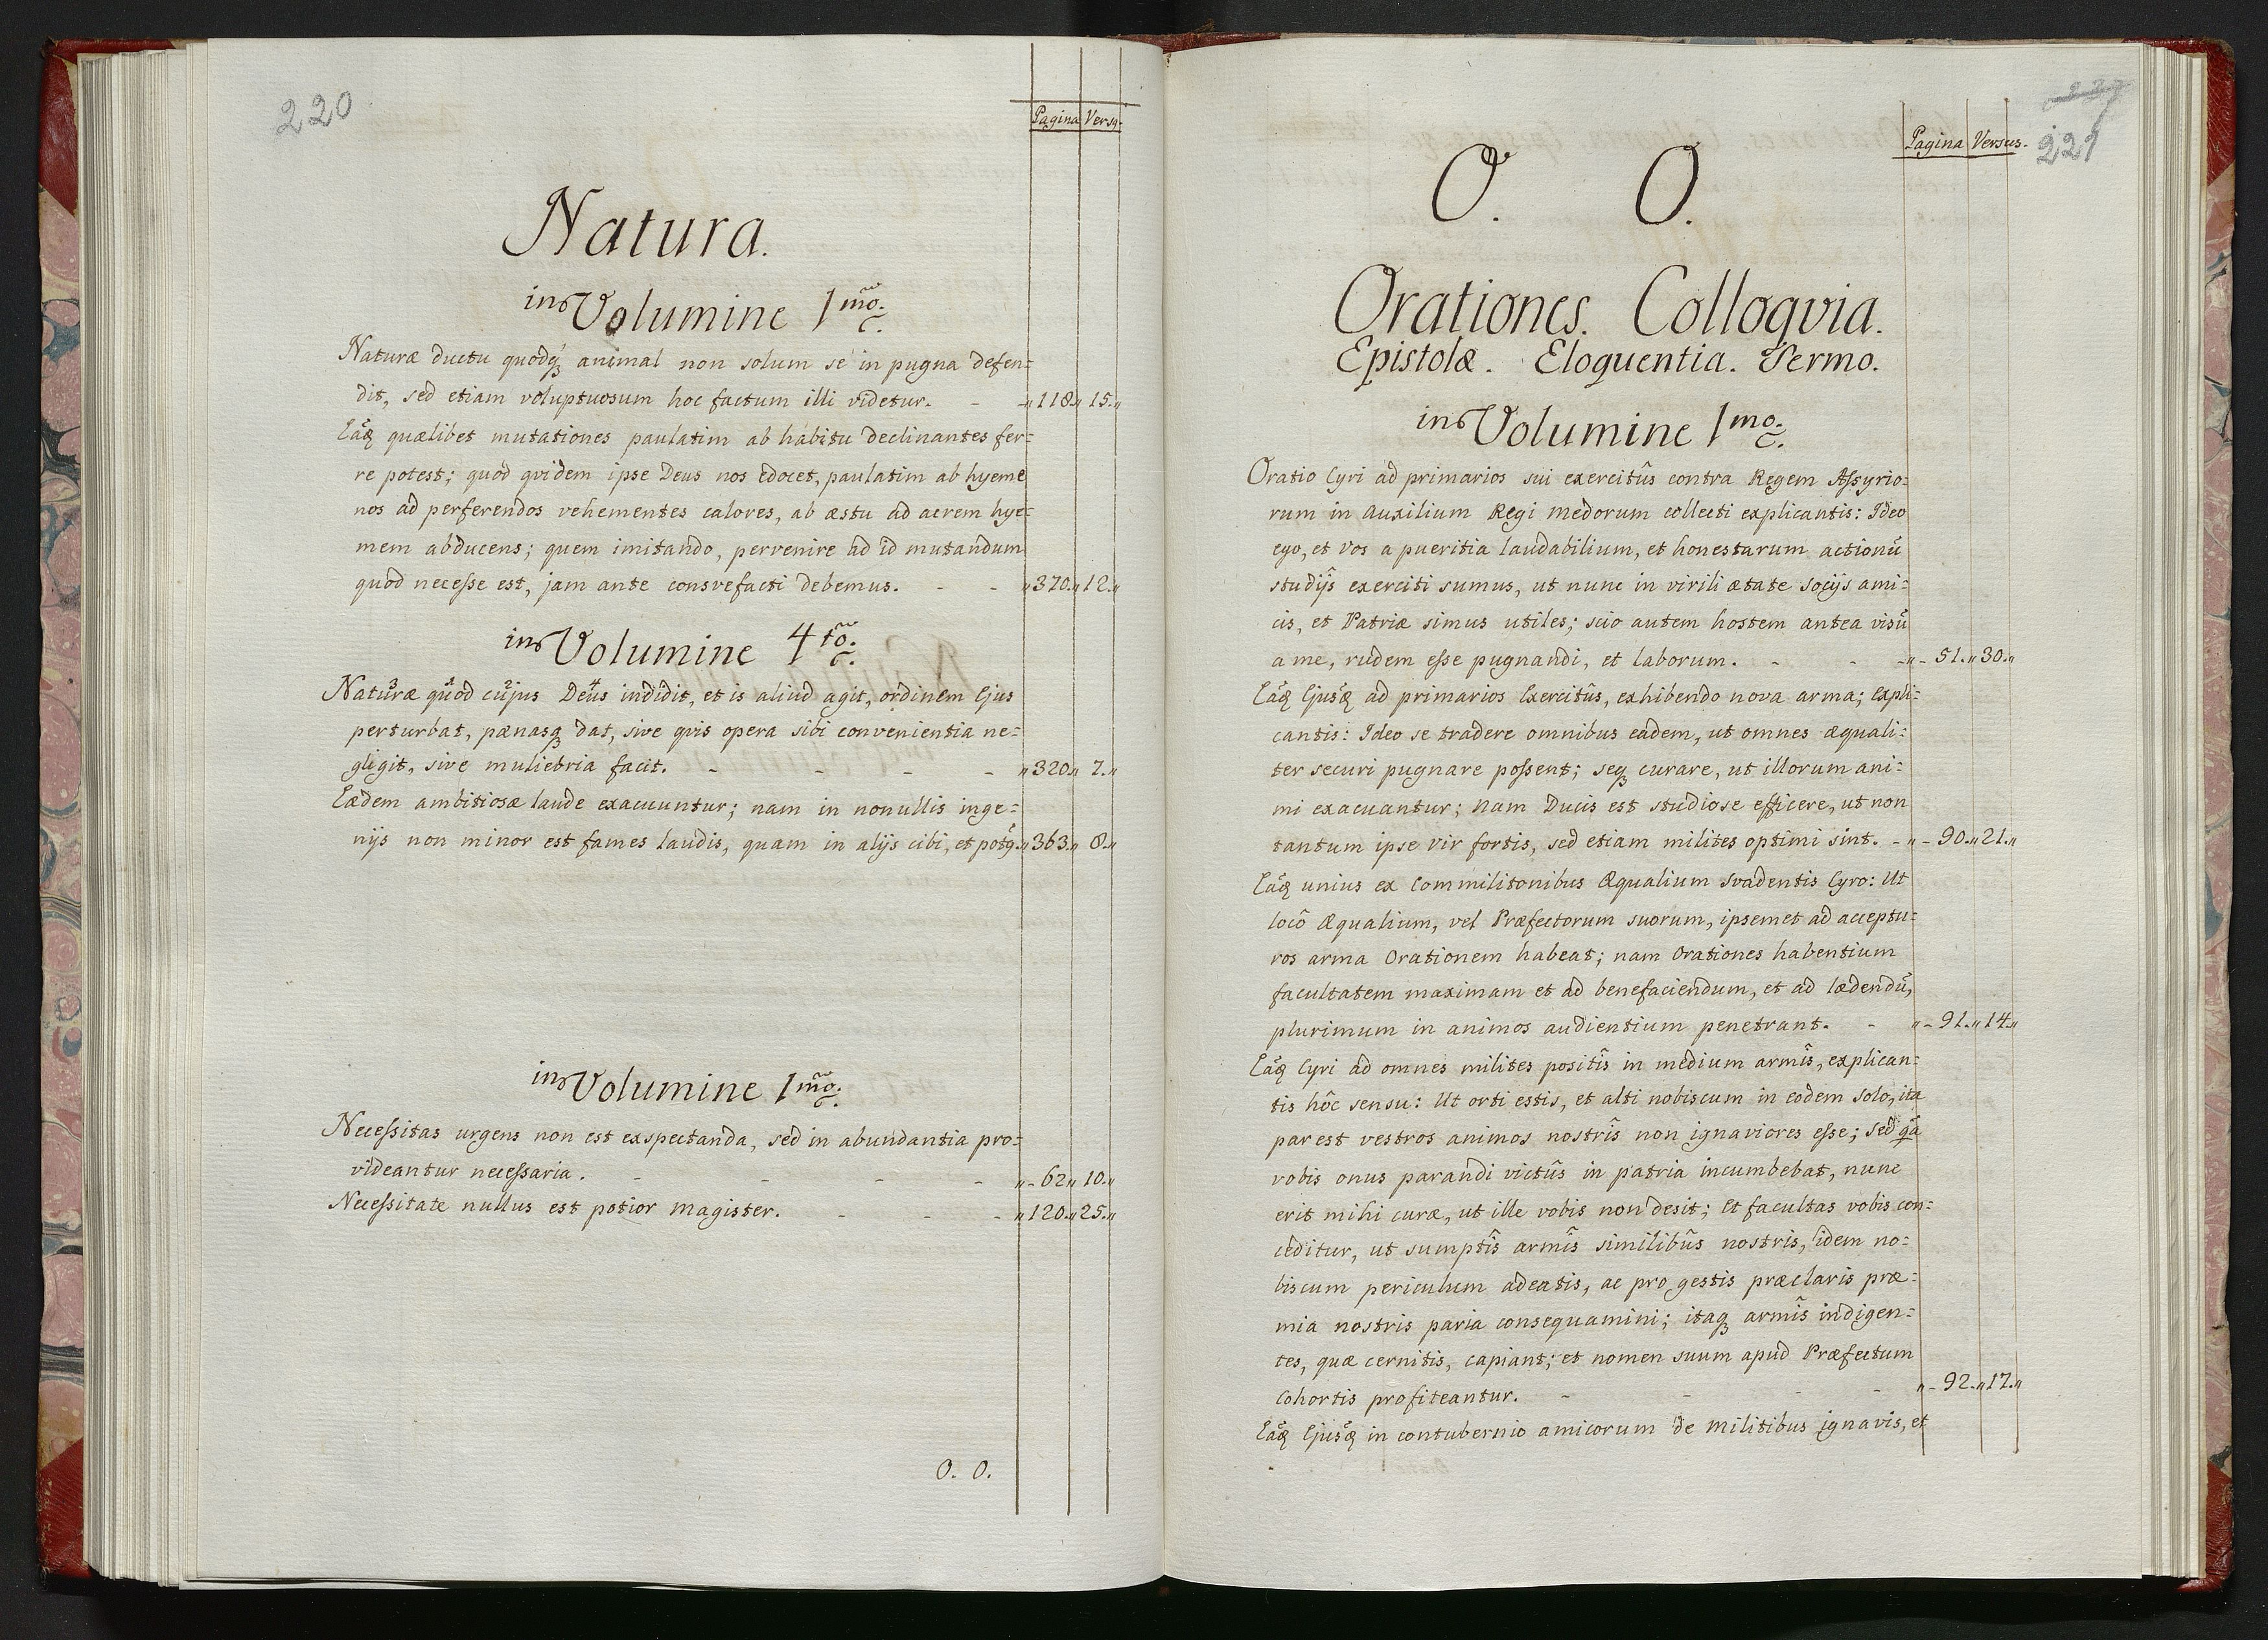 220
Pagina Versꝰ.
Natura.
in Volumine 1mo.
Naturæ ductu quodqꝫ animal non solum se in pugna defen=
dit, sed etiam voluptuosum hoc factum illi videtur. - -„118.„15.„
Eâqꝫ quælibet mutationes paulatim ab habitu declinantes fer=
re potest; quod qvidem ipse Deus nos edocet, paulatim ab hyeme
nos ad perferendos vehementes calores, ab æstu ad acrem hye=
mem abducens; quem imitando, pervenire ad id mutandum
quod necesse est, jam ante consvefacti debemus. - - „370.„12.„
in Volumine 4to.
Naturæ quod cujus Deus indidit, et is aliud agit, ordinem Ejus
perturbat, pænasqꝫ dat, sive qvis opera sibi convenientia ne=
gligit, sive muliebria facit. - - - - „320.„7.„
Eædem ambitiosæ laude exacuuntur; nam in nonullis inge=
nijs non minor est fames laudis, quam in alijs cibi, et potꝰ.„363.„8.„
in Volumine 1mo.
Necessitas urgens non est exspectanda, sed in abundantia pro=
videantur necessaria. - - - - „-62„10.„
Necessitate nullus est potior magister. - - - „120.„25.„
O. O.
221
Pagina Versus.
O. O.
Orationes. Colloqvia.
Epistolæ. Eloquentia. Sermo.
in Volumine 1mo.
Oratio Cyri ad primarios sui exercitûs contra Regem Assyrio=
rum in auxilium Regi medorum collecti explicantis: Ideo
ego, et vos a pueritia laudabilium, et honestarum actionũ
studijs exerciti sumus, ut nunc in virili ætate socijs ami=
cis, et Patriæ simus utiles; scio autem hostem antea visũ
a me, rudem esse pugnandi, et laborum. - - -„-51.„30.„
Eâqꝫ Ejusqꝫ ad primarios Exercitûs, exhibendo nova arma; Expli=
cantis: Ideo se tradere omnibus eadem, ut omnes æquali=
ter securi pugnare possent; seqꝫ curare, ut illorum ani=
mi exacuantur; nam Ducis est studiose efficere, ut non
tantum ipse vir fortis, sed etiam milites optimi sint. -„-90.„21.„
Eâqꝫ unius ex Commilitonibus Æqualium svadentis Cyro: Ut
locô Æqualium, vel Præfectorum suorum, ipsemet ad acceptu=
ros arma Orationem habeat; nam Orationes habentium
facultatem maximam et ad benefaciendum, et ad lædendũ,
plurimum in animos audientium penetrant. - „-91.„14.„
Eâqꝫ Cyri ad omnes milites positîs in medium armîs, explican=
tis hôc sensu: Ut orti estis, et alti nobiscum in eodem solo, ita
par est vestros animos nostrîs non ignaviores esse; sed qa
vobis onus parandi victûs in patria incumbebat, nunc
erit mihi curæ, ut ille vobis non desit; Et facultas vobis con=
ceditur, ut sumptîs armîs similibûs nostris, idem no=
biscum periculum adeatis, ac pro gestis præclaris præ=
mia nostris paria consequamini; itaqꝫ armîs indigen=
tes, quæ cernitis, capiant; et nomen suum apud Præfectum
Cohortis profiteantur. - - - - „-92.„17.„
Eâqꝫ Ejusqꝫ in contubernio amicorum de militibus ignavis, et